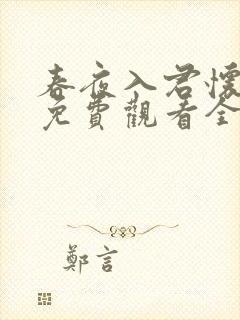 春夜入君懷
免費觀看全
鄭言